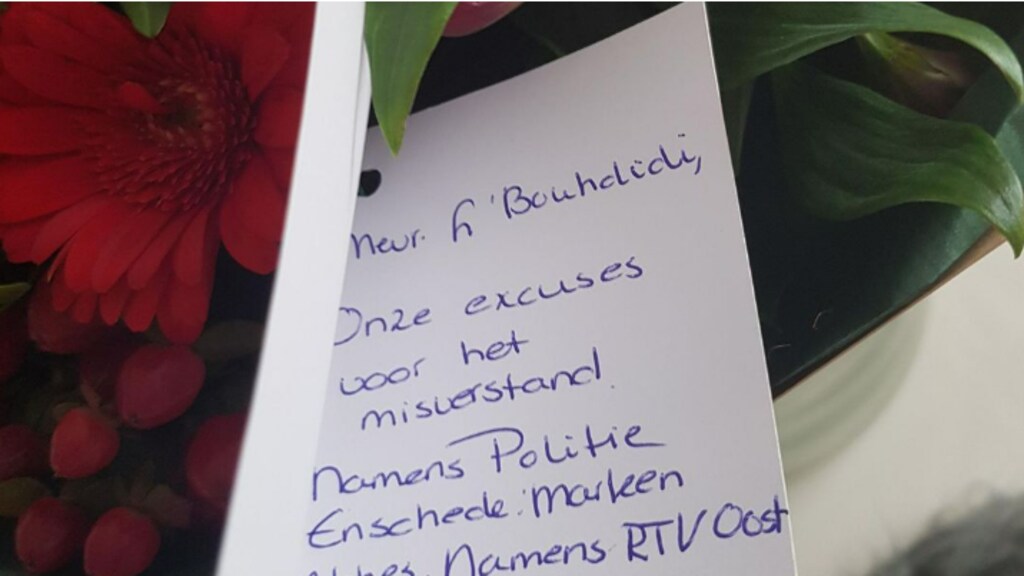 Mevr. h'Bouhdidi,
Onze excuses
voor het
misverstand.
Namens Politie
Enschede: Marleen
Namens RTV Oost